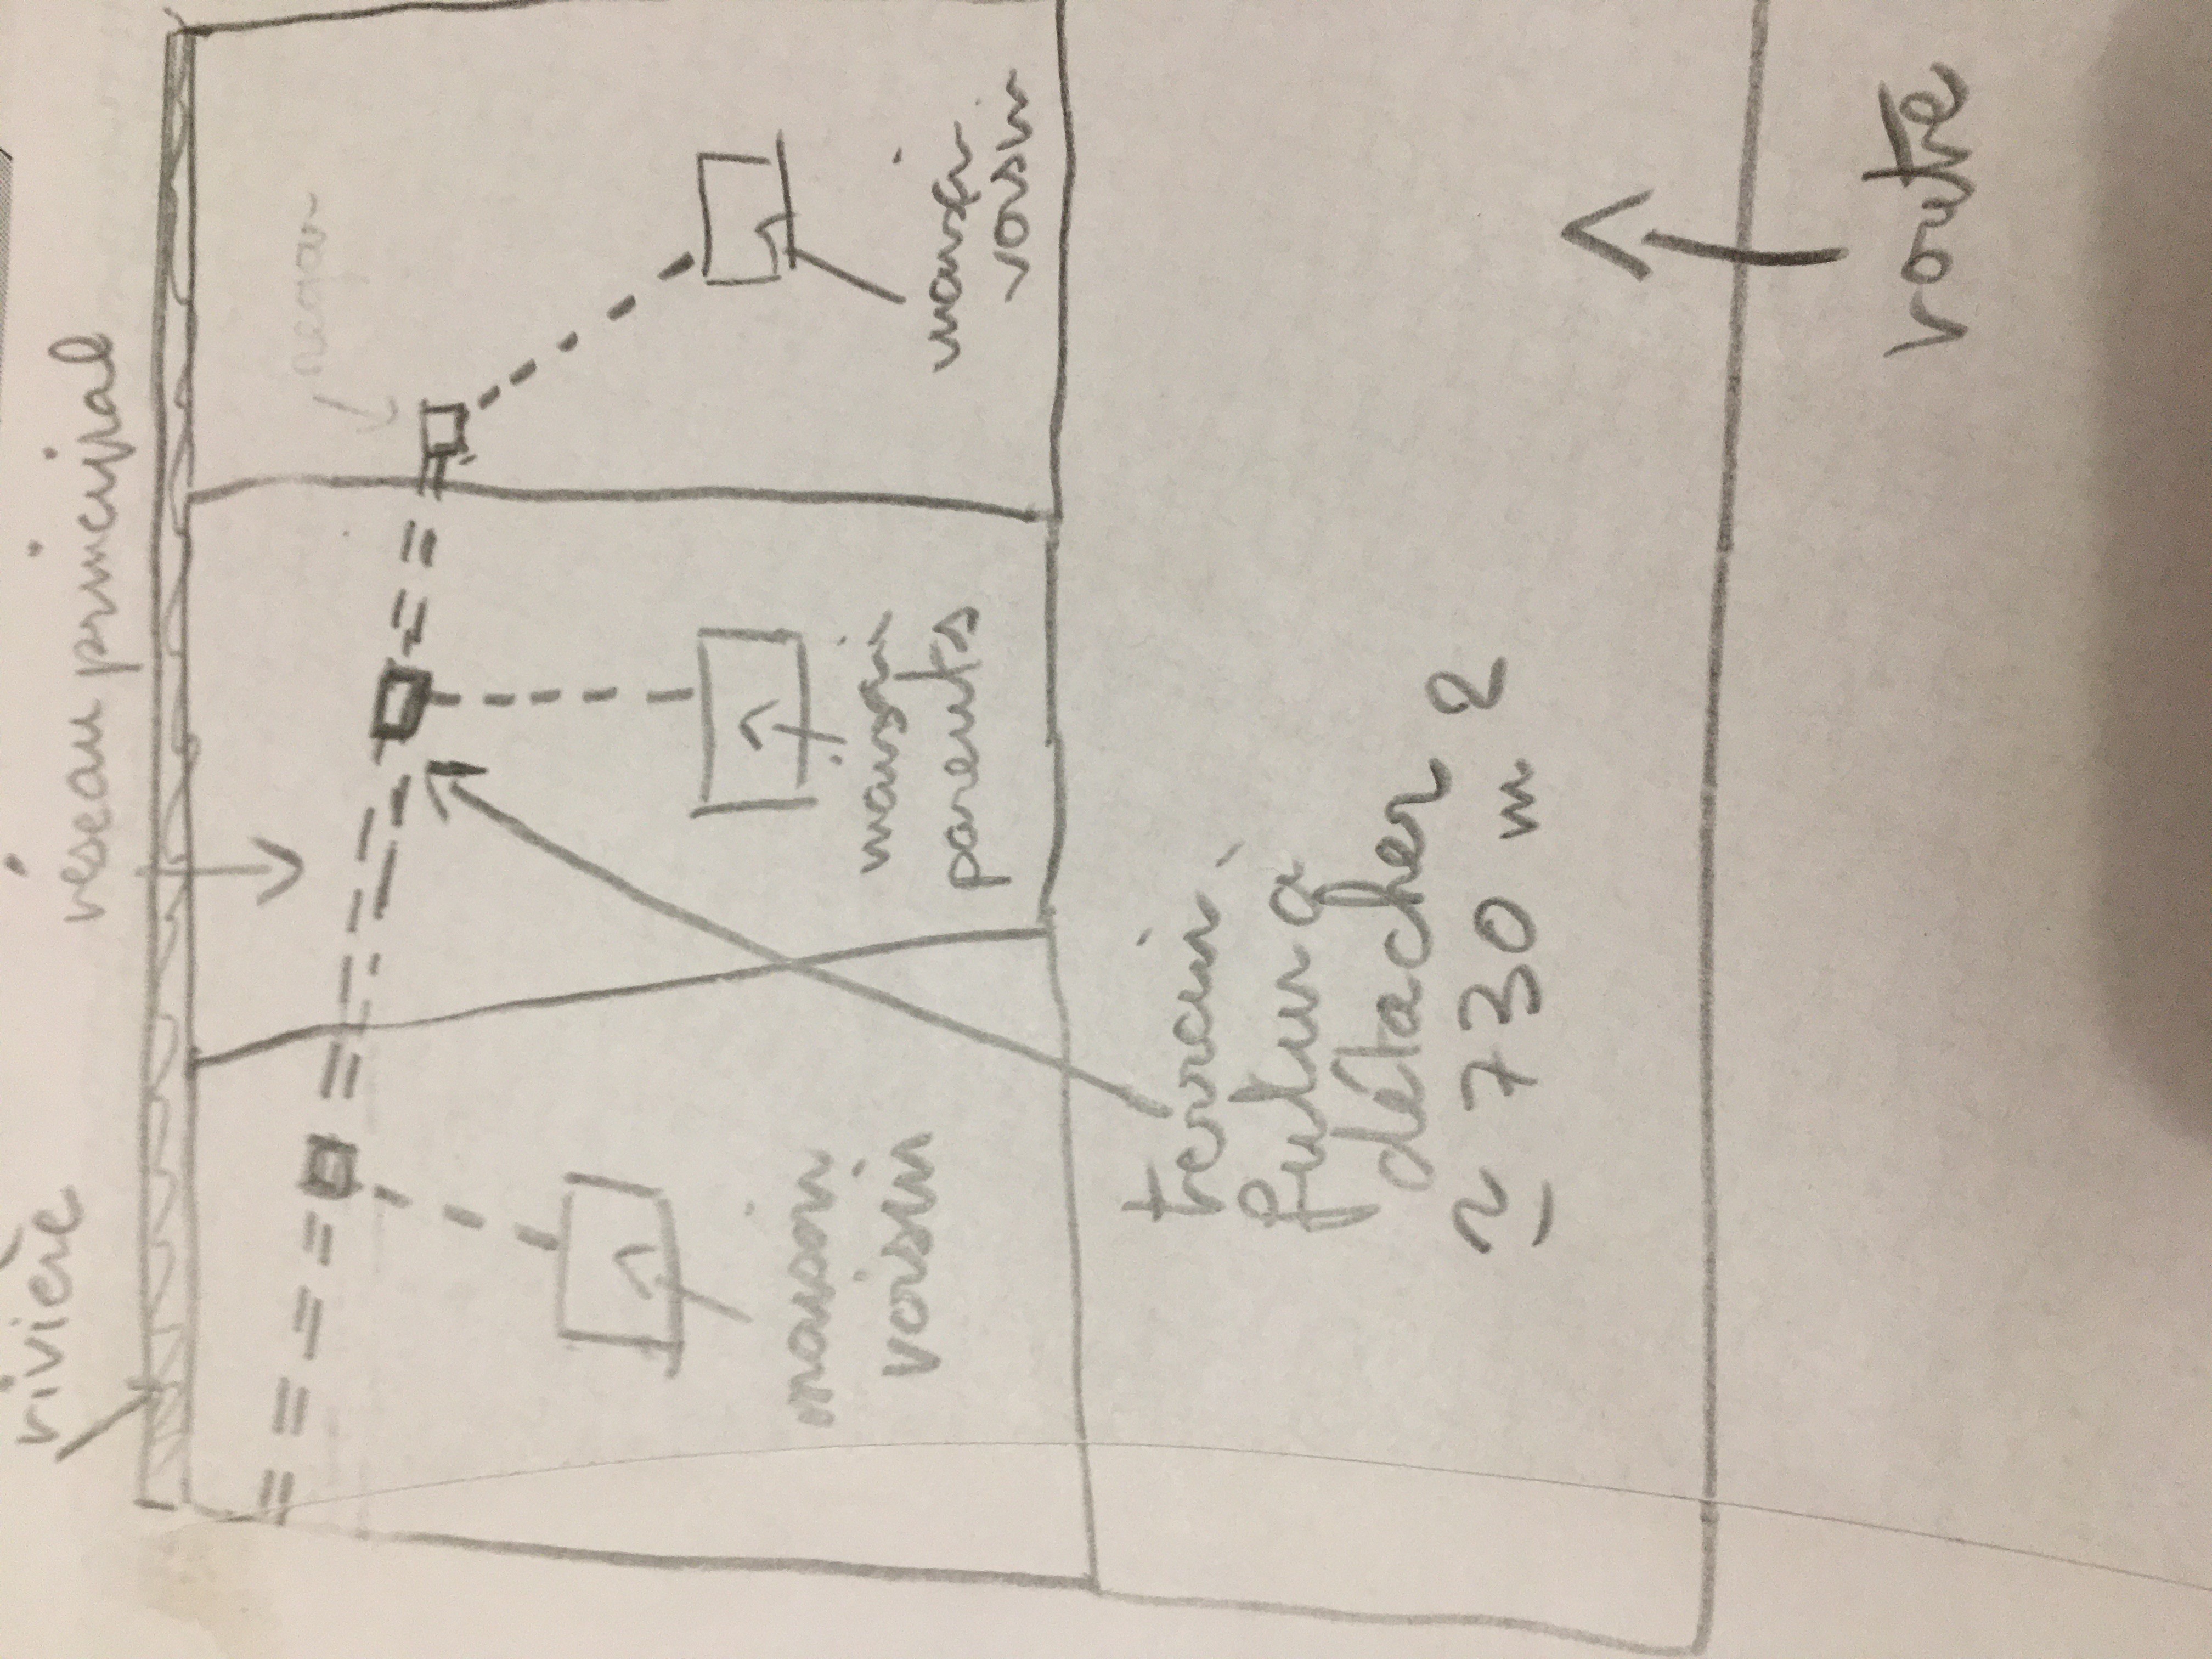 rivière
réseau principal
regar
maison
voisin
maison
parents
maison
voisin
terrain
futur à
détacher
~ 730 m 2
route